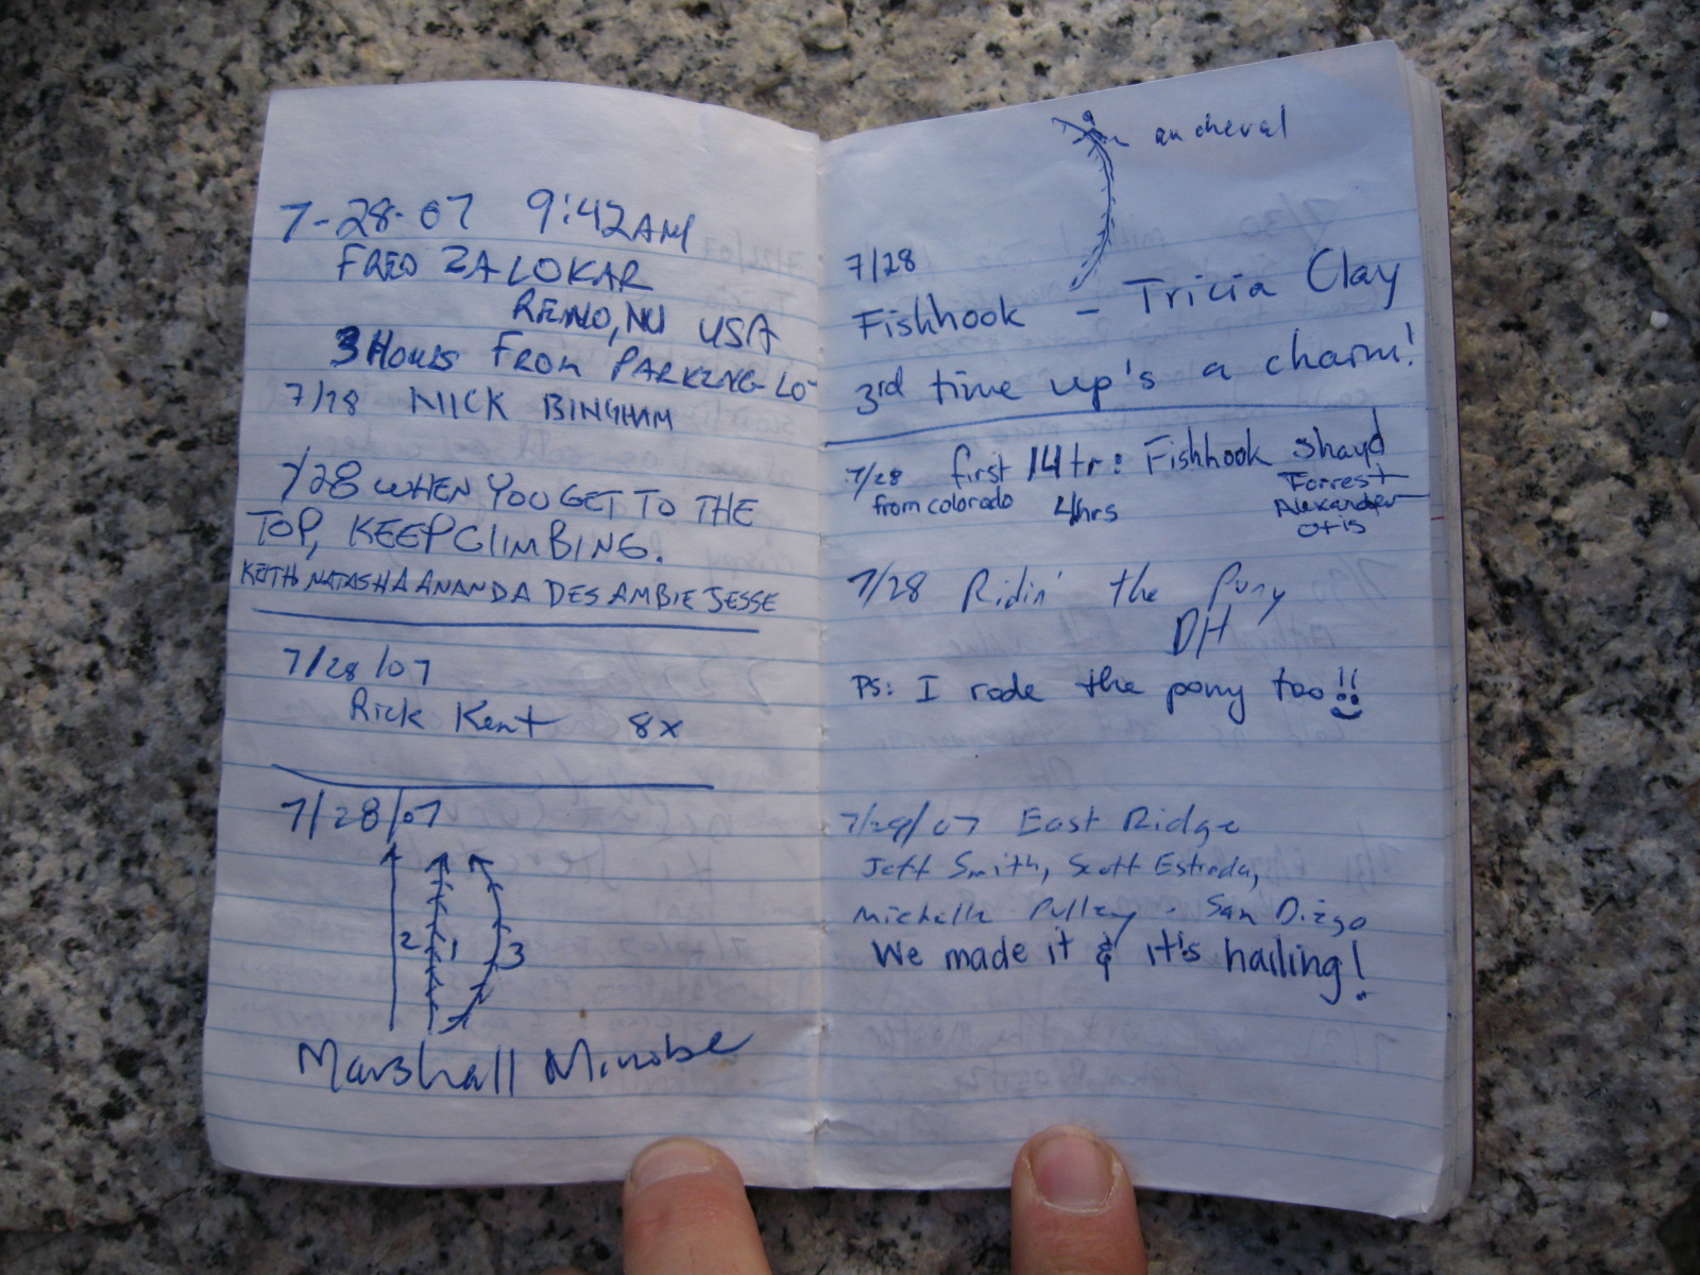 7-28-07 9:42AM
FRED ZALOKAR
RENO, NV USA
3 HOURS FROM PARKING LO
7/28 NICK BINGHAM
7/28 WHEN YOU GET TO THE
TOP, KEEP CLIMBING.
KEITH NATASHA ANANDA DES AMBIE JESSE
7/28/07
Rick Kent 8x
7/28/07
2 1 3
Marshall
au cheval
7/28
Fishhook - Tricia Clay
3rd time up's a charm!
7/28 first 14tr: Fishhook Shayd
from colorado 4hrs Forrest
Alexander
Otis
7/28 Ridin' the Pony
DH
PS: I rode the pony too!!
7/29/07 East Ridge
Jeff Smith, Scott Estrada,
Michelle Pulley - San Diego
We made it & it's hailing!